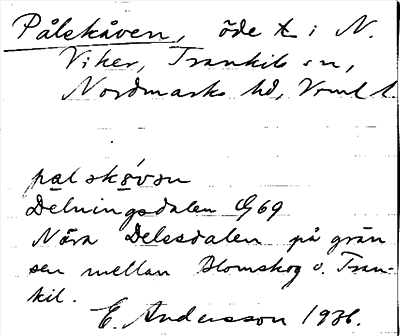 Pålskåven, öde t. i N.
Viker, Trankils sn,
Nordmarks hd, Vrml l.
palskåvən
Delningsdalen G69
Nära Delesdalen på grän
sen mellan Blomskog o. Tran-
kil.
E. Andersson 1936.